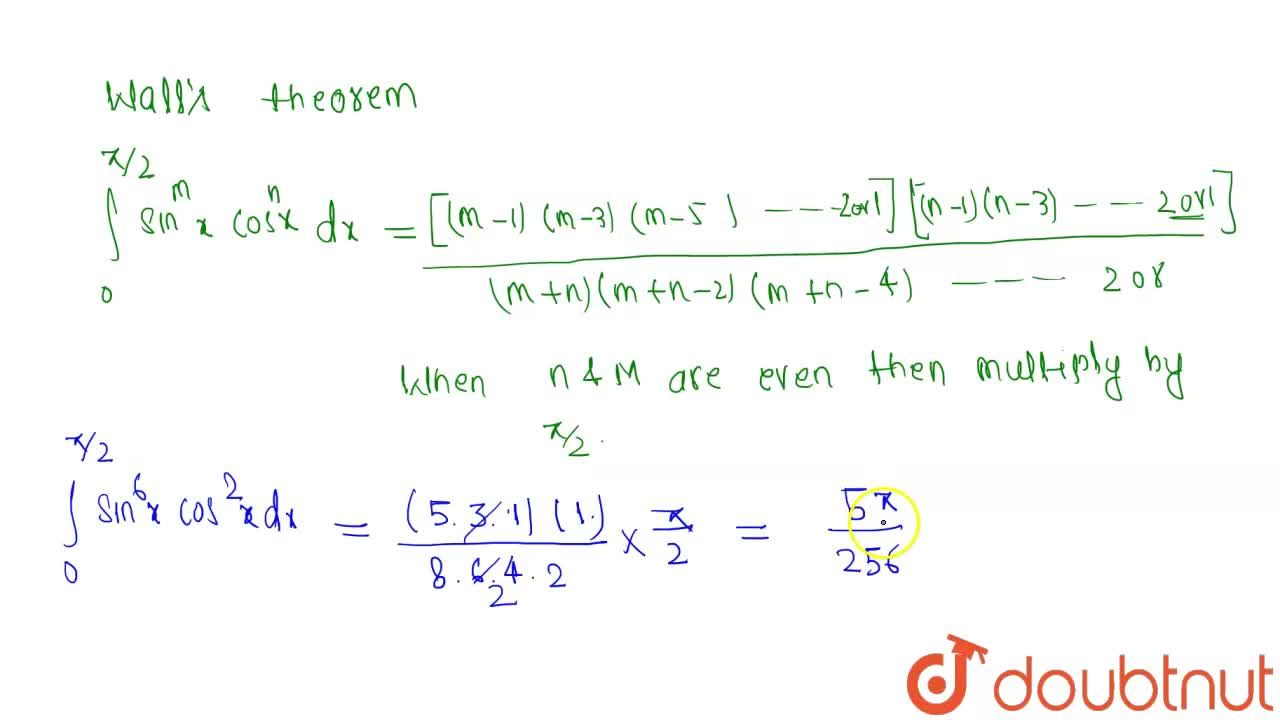 Walli's theorem
π/2
∫ sin^m x cos^n x dx = [(m-1) (m-3) (m-5) ---- 2 or 1] [(n-1)(n-3) --- 2 or 1]
0
(m+n)(m+n-2) (m+n-4) --- 2 or
When n & M are even then multiply by
π/2 .
π/2
∫ sin^6 x cos^2 x dx = (5.3.1) (1.) / 8.6.4.2 × π/2 = 5π/256
0
2
doubtnut